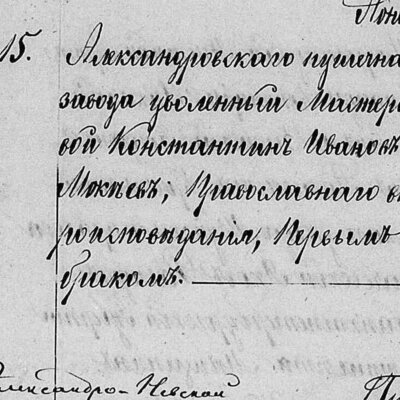 15. Александровскаго пушечна
завода уволенный Мастеро
вой Константинъ Ивановъ
Мокѣевъ, Православнаго вѣ
роисповѣданія, Первымъ
бракомъ.
Александро-Невской